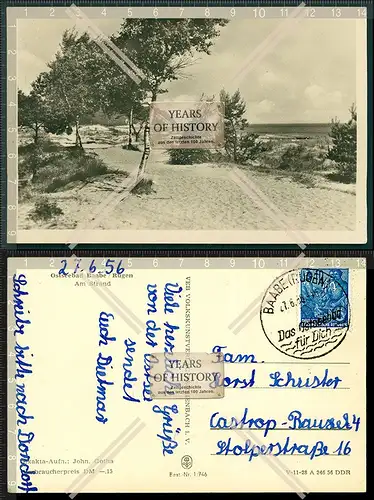 YEARS
OF HISTORY
Zeitgeschichte
aus den letzten 100 Jahren.
27.6.56
Ostseebad Baabe/Rügen
Am Strand
Schreibe
nach
Viele herzliche Grüße
von der Ostsee
sendet
Euch Dietmar
VEB VOLKSKUNSTVERLAG
BAABE (RÜGEN)
27.6.56
Das Ostseebad
für Dich
YEARS
OF HISTORY
Zeitgeschichte
aus den letzten 100 Jahren.
Fam.
Horst Schuster
Castrop-Rauxel 4
Stolperstraße 16
Exakta-Aufn.: John, Gotha
Verbraucherpreis DM —.15
Best.-Nr. 1/746
V-11-28 A 246 56 DDR